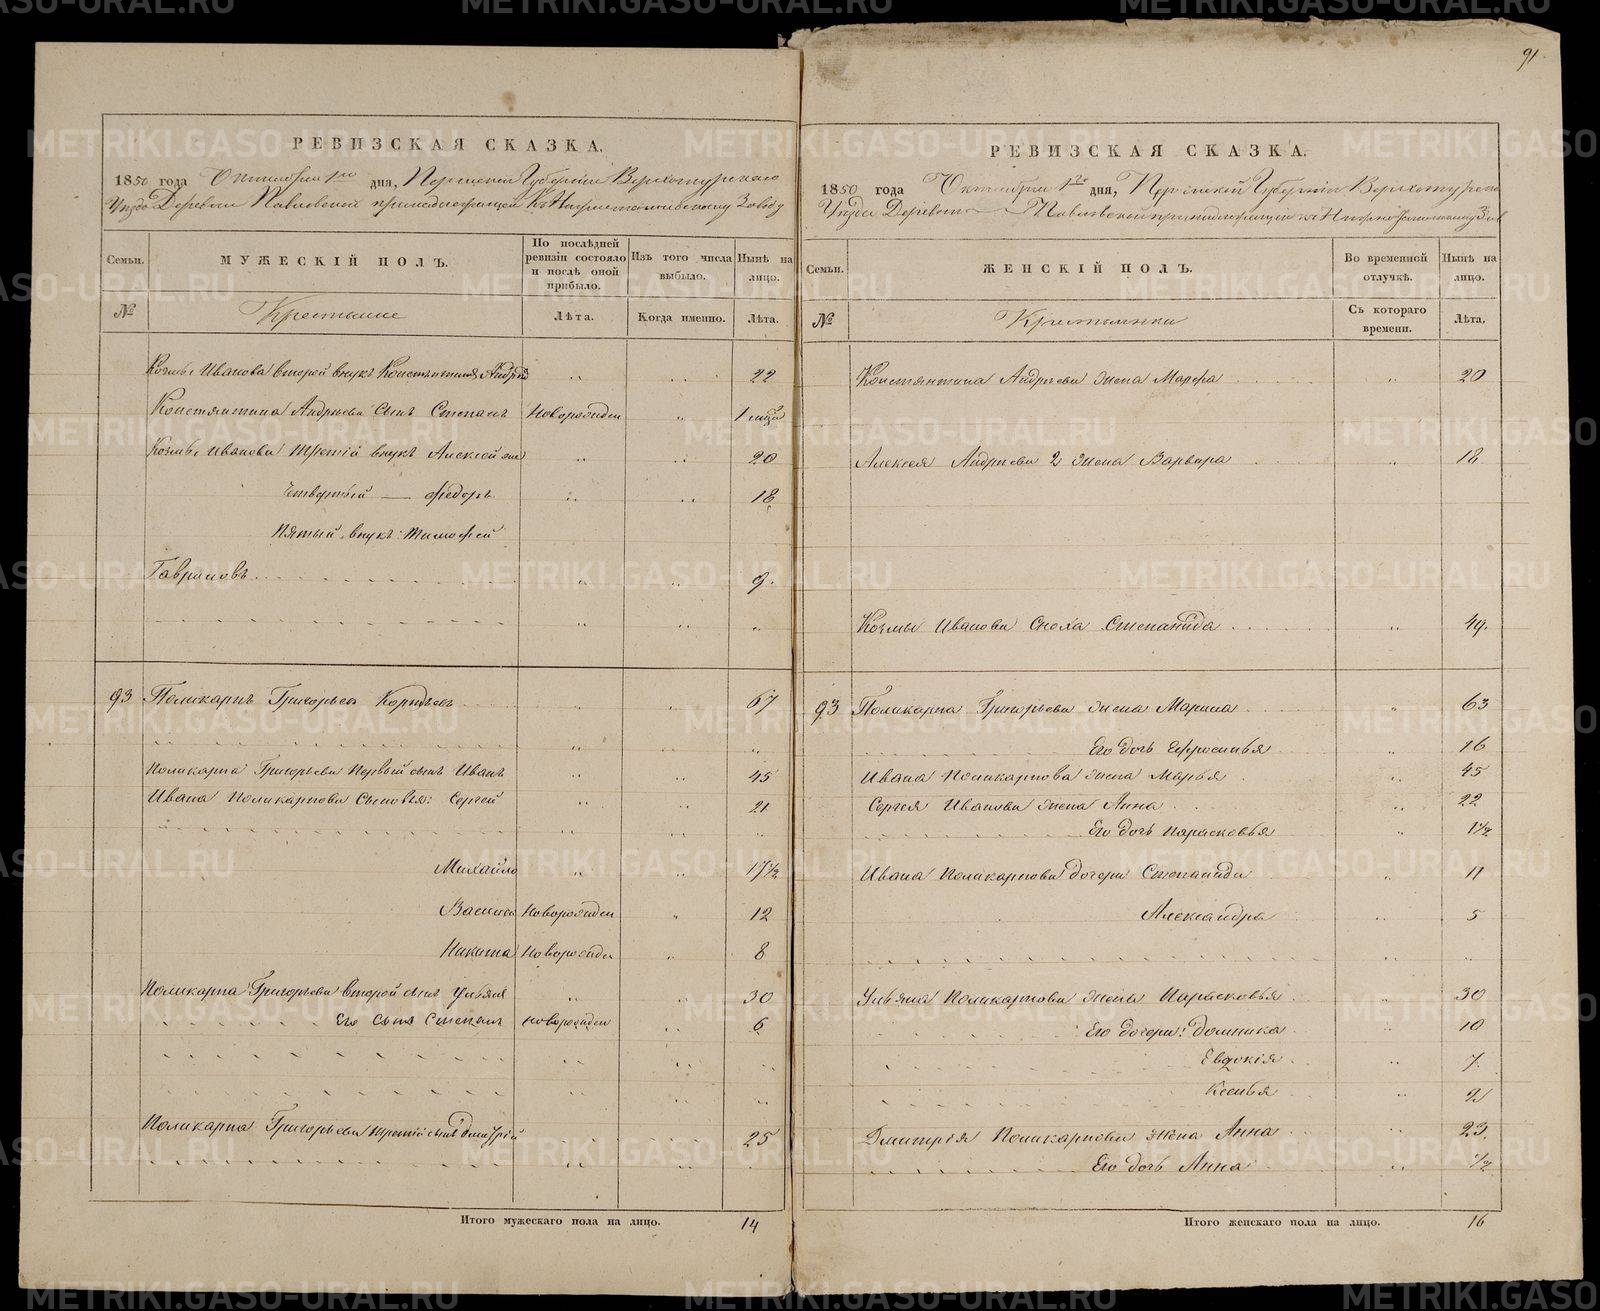 91
РЕВИЗСКАЯ СКАЗКА.
1850 года Октября 1го дня, Пермской Губернии Верхотурскаго
Уезда Деревни Павловской принадлежащей къ Завод
Семьи. МУЖЕСКІЙ ПОЛЪ. По послѣдней ревизіи состояло и послѣ оной прибыло. Изъ того числа выбыло. Нынѣ на лицо.
№ Крестьяне Лѣта. Когда именно. Лѣта.
Козмы Иванова второй внукъ Констянтинъ Андр 22
Констянтина Андрѣева сынъ Степанъ Новорожден 1
Козмы Иванова третій внукъ Алексей 20
Четвертый — Федоръ 18
Пятый внукъ: Тимофей
Гавриловъ 9.
93 Поликарпъ Григорьевъ 67
Поликарпа Григорьева Первый сынъ Иванъ 45
Ивана Поликарпова Сыновья: Сергей 21
Михайло 17 1/2
Василей Новорожден 12
Никита Новорожден 8
Поликарпа Григорьева второй сынъ Ульян 30
Его сынъ Степанъ Новорожден 6
Поликарпа Григорьева третій сынъ Дмитрій 25
Итого мужескаго пола на лицо. 14
РЕВИЗСКАЯ СКАЗКА.
1850 года Октября 1го дня, Пермской Губерніи Верхотурскаго
Уезда Деревни Павловской принадлежащей къ Зав
Семьи. ЖЕНСКІЙ ПОЛЪ. Во временной отлучкѣ. Нынѣ на лицо.
№ Крестьянки Съ котораго времени. Лѣта.
Констянтина Андрѣева жена Марфа 20
Алексея Андрѣева 2 жена Варвара 18
Козмы Иванова Сноха Степанида 49.
93 Поликарпа Григорьева жена Марина 63
Его дочь Ефросинья 16
Ивана Поликарпова жена Марья 45
Сергея Иванова жена Анна 22
Его дочь Парасковья 1 1/2
Ивана Поликарпова дочери Степанида 11
Александра 5
Ульяна Поликарпова жена Парасковья 30
Его дочери: Домника 10
Евдокія 7
Ксенья 2
Дмитрія Поликарпова жена Анна 23
Его дочь Анна 1/2
Итого женскаго пола на лицо. 16
METRIKI.GASO-URAL.RU